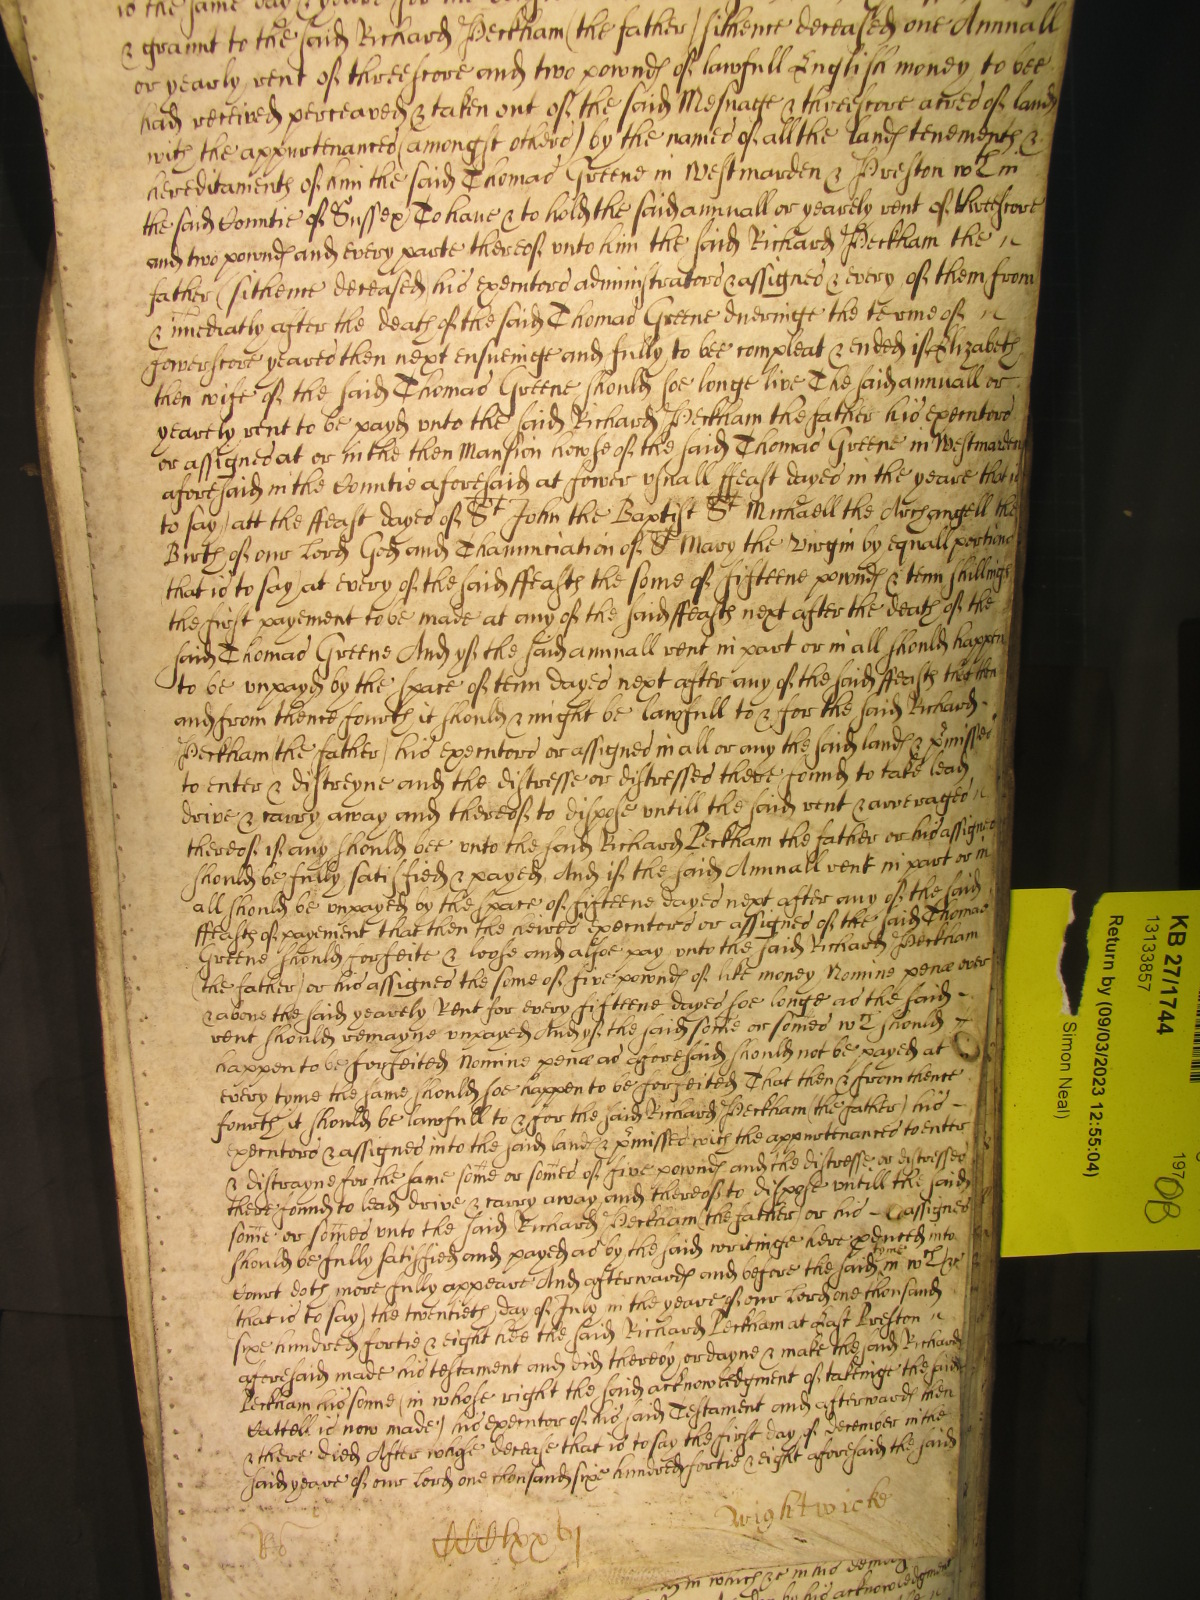 to the same day & yeare for the
& graunt to the said Richard Peckham (the father) sithence deceased one Annuall
or yearly rent of threescore and two pownds of lawfull English money to bee
had received perceaved & taken out of the said Mesuage & threescore acres of land
with the appurtenances (amongst others) by the names of all the lands tenements &
hereditaments of him the said Thomas Greene in Westmarden & Preston wth in
the said Countie of Sussex To have & to hold the said annuall or yearely rent of threescore
and two pownds and every parte thereof unto him the said Richard Peckham the
father (sithence deceased) his executors administrators & assignes & every of them from
& imediatly after the death of the said Thomas Greene dueringe the terme of
fowerscore yeares then next ensueinge and fully to bee compleat & ended if Elizabeth
then wife of the said Thomas Greene should soe longe live The said annuall or
yearely rent to be payd unto the said Richard Peckham the father his executors
or assignes at or in the then Mansion howse of the said Thomas Greene in Westmarden
aforesaid in the Countie aforesaid at fower usuall ffeast dayes in the yeare that is
to say, att the ffeast dayes of St John the Baptist St Michaell the Archangell the
Birth of our Lord God and Thanunciation of St Mary the Virgin by equall portions
that is to say, at every of the said ffeasts the some of fifteene pownds & tenn shillings
the first payement to be made at any of the said ffeasts next after the death of the
said Thomas Greene And yf the said annuall rent in part or in all should happen
to be unpayd by the space of tenn dayes next after any of the said ffeasts that then
and from thence fourth it should & might be lawfull to & for the said Richard
Peckham the father) his executors or assignes in all or any the said lands & pmisses
to enter & distreyne and the distresse or distresses there found to take lead
drive & carry away and thereof to dispose untill the said rent & arrerages
thereof if any should bee unto the said Richard Peckham the father or his assignes
should be fully satisfied & payed, And if the said Annuall rent in part or in
all should be unpayed by the space of fifteene dayes next after any of the said
ffeasts of payement that then the heires executors or assignes of the said Thomas
Greene should forfeite & loose and alsoe pay unto the said Richard Peckham
(the father) or his assignes the some of five pownds of like money Nomine penae over
& above the said yearely Rent for every fifteene dayes soe longe as the said
rent should remayne unpayed And yf the said some or somes wch should
happen to be forfeited Nomine penae as aforesaid should not be payed at
every tyme the same should soe happen to be forfeited That then & from thence
fourth it should be lawfull to & for the said Richard Peckham (the father) his
executors & assignes into the said lands & pmisses with the appurtenances to enter
& distrayne for the same some or somes of five pownds and the distresse or distresses
there found to lead drive & carry away and thereof to dispose untill the said
some or somes unto the said Richard Peckham (the father) or his assignes
should be fully satisfied and payed as by the said writinge here pduced into
Court doth more fully appeare And afterwards and before the said tyme in wch &c
that is to say) the twentieth day of July in the yeare of our Lord one thousand
sixe hundred fortie & eight hee the said Richard Peckham at East Preston
aforesaid made his testament and did thereby ordayne & make the said Richard
Peckham his sonne (in whose right the said acknowledgment of takeinge the said
Cattell is now made) his executor of his said Testament and afterwards then
& there died After whose decease that is to say the first day of December in the
said yeare of our Lord one thousand sixe hundred fortie & eight aforesaid the said
Wightwicke
in which &c in his demesne
by his acknowledgment
KB 27/1744
13133857
Return by (09/03/2023 12:55:04)
Simon Neal)